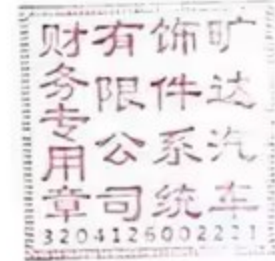 旷达汽车
饰件系统
有限公司
财务专用章
3204126002221